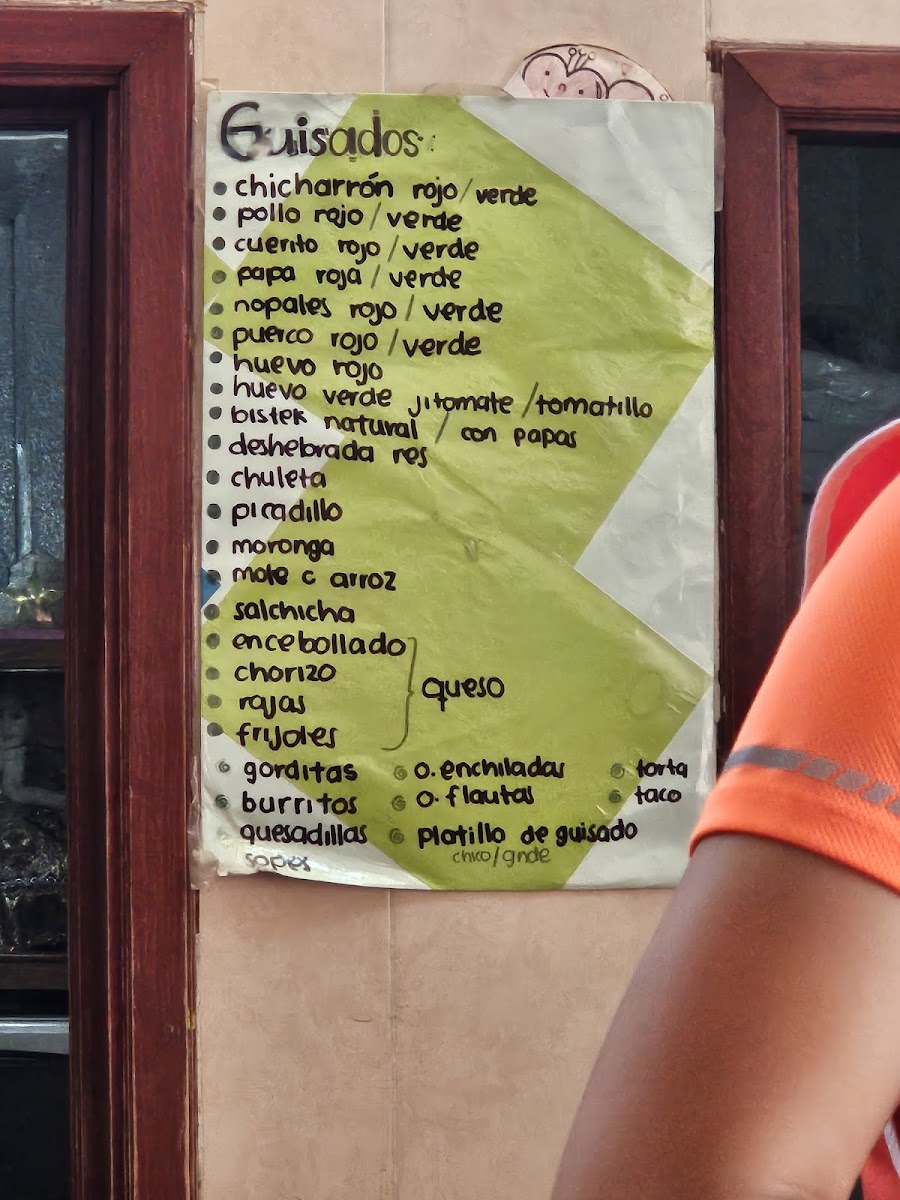 Guisados:
• chicharrón rojo/verde
• pollo rojo/verde
• cuerito rojo/verde
• papa roja/verde
• nopales rojo/verde
• puerco rojo/verde
• huevo rojo
• huevo verde jitomate/tomatillo
• bistek natural / con papas
• deshebrada res
• chuleta
• picadillo
• moronga
• mole c arroz
• salchicha
• encebollado
• chorizo
} queso
• rajas
• frijoles
• gorditas • o. enchiladas • torta
• burritos • o. flautas • taco
quesadillas • platillo de guisado
sopes chico/gnde